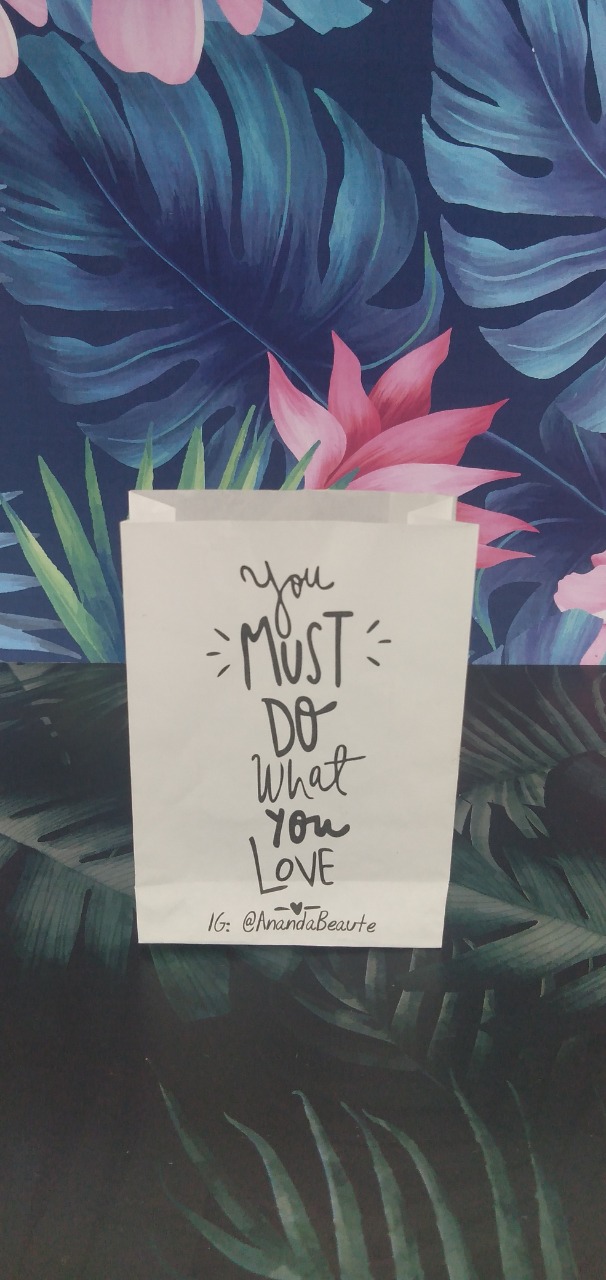 You
MUST
DO
What
You
LOVE
IG: @AnandaBeaute